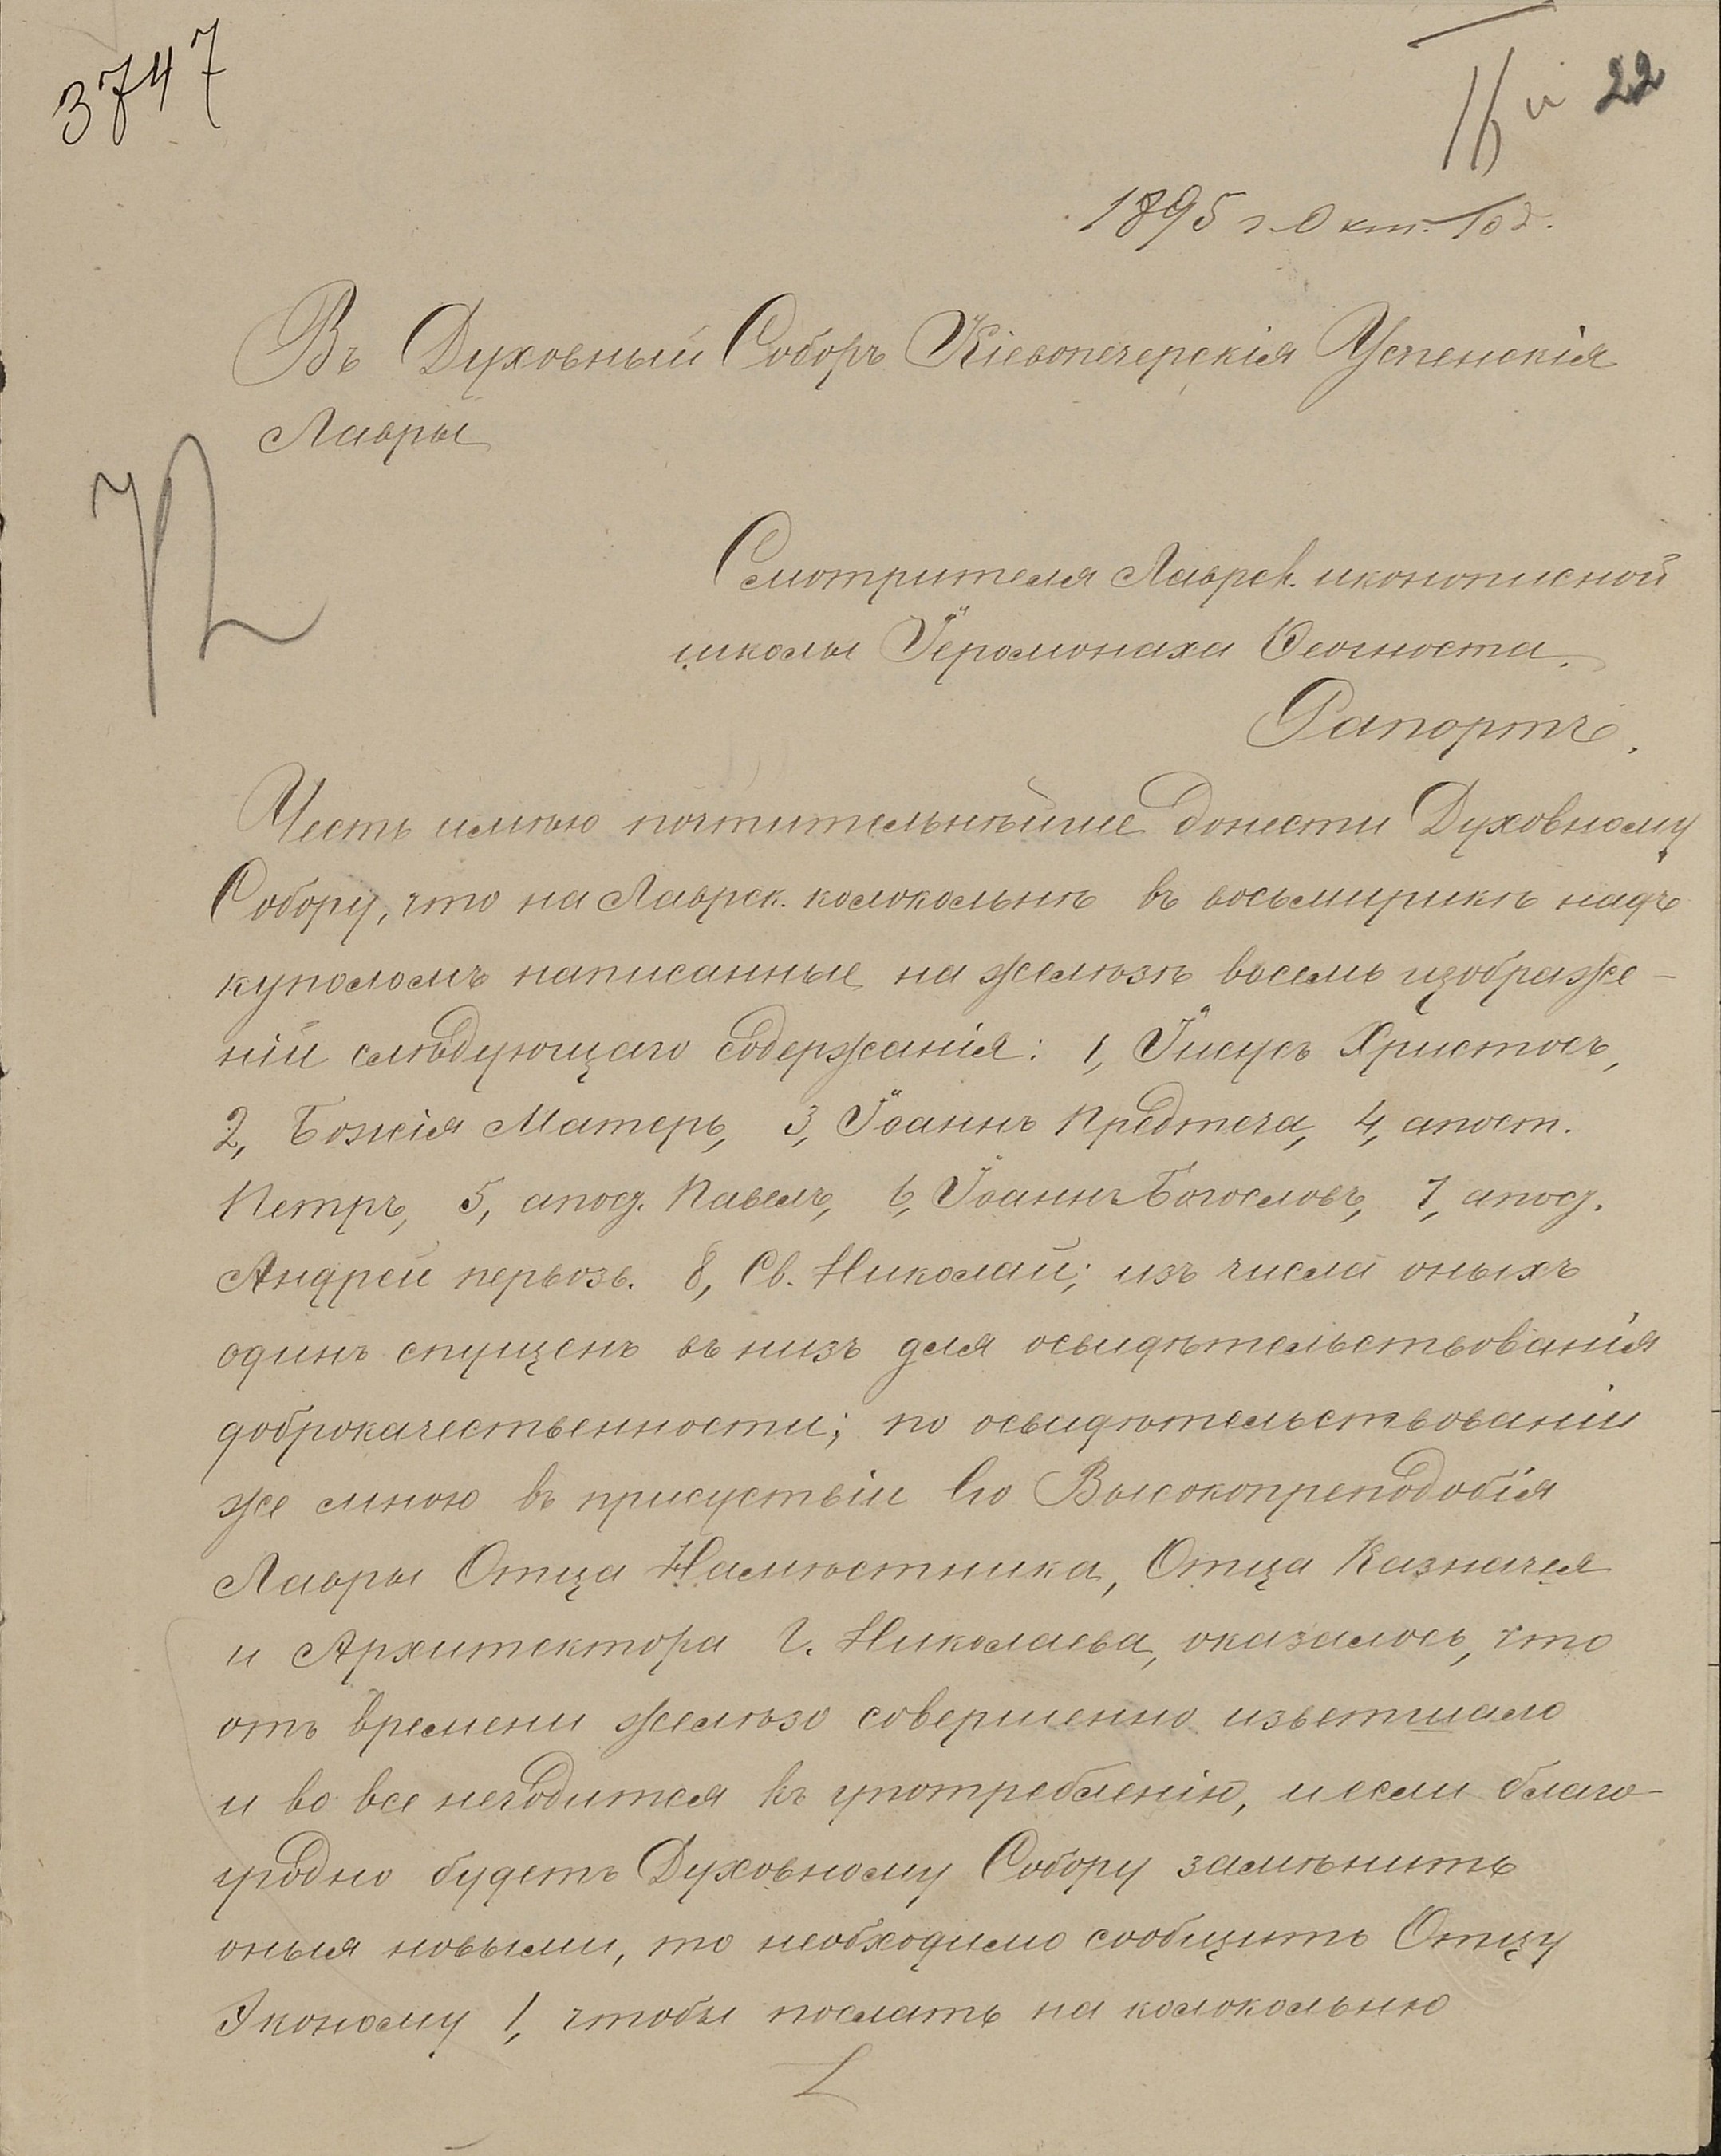 3747
22
1895 г. Окт. 10 д.
Въ Духовный Соборъ Кіевопечерскія Успенскія
Лавры
Смотрителя Лаврск. иконописной
школы Іеромонаха Ѳеогноста.
Рапортъ.
Честь имѣю почтительнѣйше донести Духовному
Собору, что на Лаврск. колокольнѣ въ восьмирикѣ надъ
куполомъ написанные на желѣзѣ восемь изображе-
ній слѣдующаго содержанія: 1, Іисусъ Христосъ,
2, Божія Матерь, 3, Іоаннъ Предтеча, 4, апост.
Петръ, 5, апос. Павелъ, 6, Іоаннъ Богословъ, 7, апос.
Андрей первозв. 8, Св. Николай; изъ числа оныхъ
одинъ спущенъ въ низъ для освидѣтельствованія
доброкачественности; по освидѣтельствованіи
же мною въ присуствіи Его Высокопреподобія
Лавры Отца Намѣстника, Отца Казначея
и Архитектора Г. Николаева, оказалось, что
отъ времени желѣзо совершенно изветшало
и во все негодится къ употребленію, и если благо-
угодно будетъ Духовному Собору замѣнить
оныя новыми, то необходимо сообщить Отцу
Эконому 1, чтобы послать на колокольню